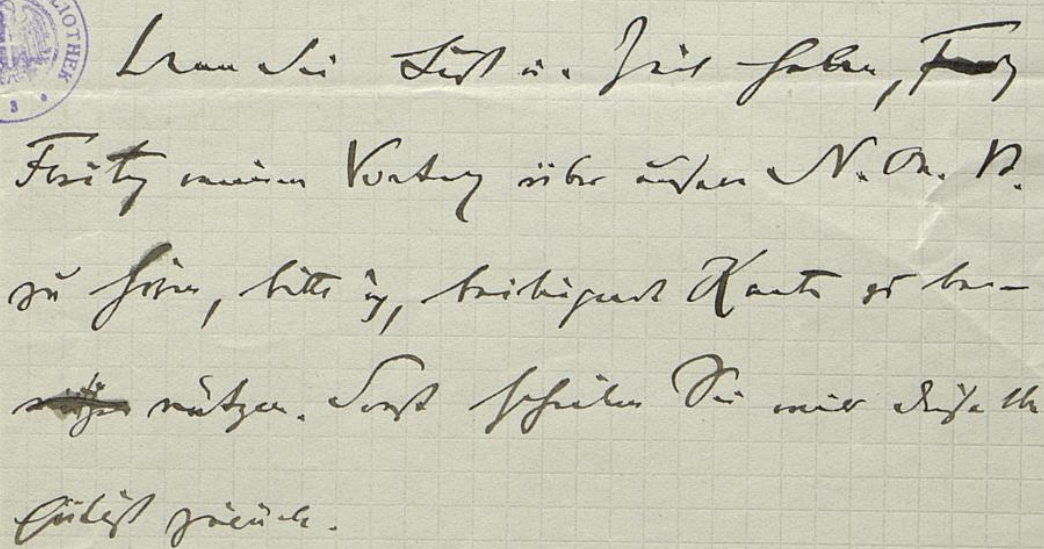 LIOTHEK
3
Wenn Sie Lust u. Zeit haben,
Freitag meinen Vortrag über
zu hören, bitte ich, beiliegende Karte zu be-
nützen. Sonst schicken Sie mir dieselbe
gütigst zurück.